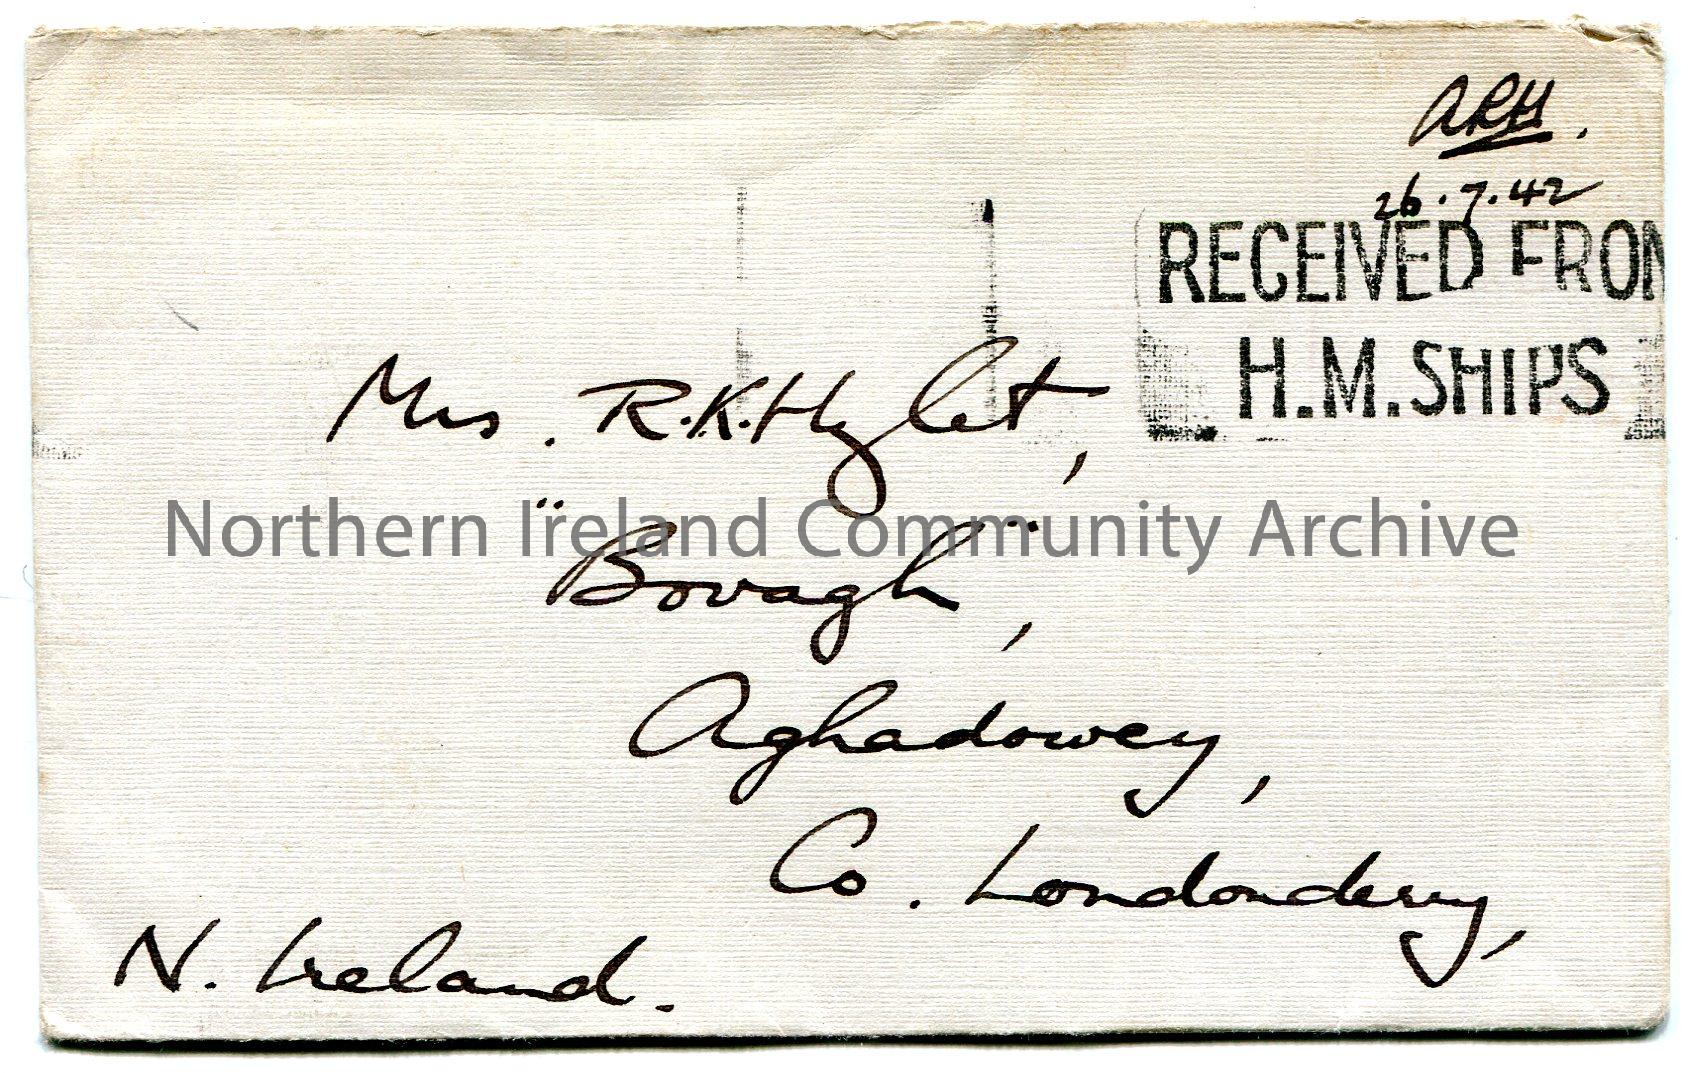 ARH.
26.7.42
RECEIVED FROM
H.M.SHIPS
Mrs. R.K. Hezlet,
"Bovagh",
Aghadowey,
Co. Londonderry,
N. Ireland.
Northern Ireland Community Archive